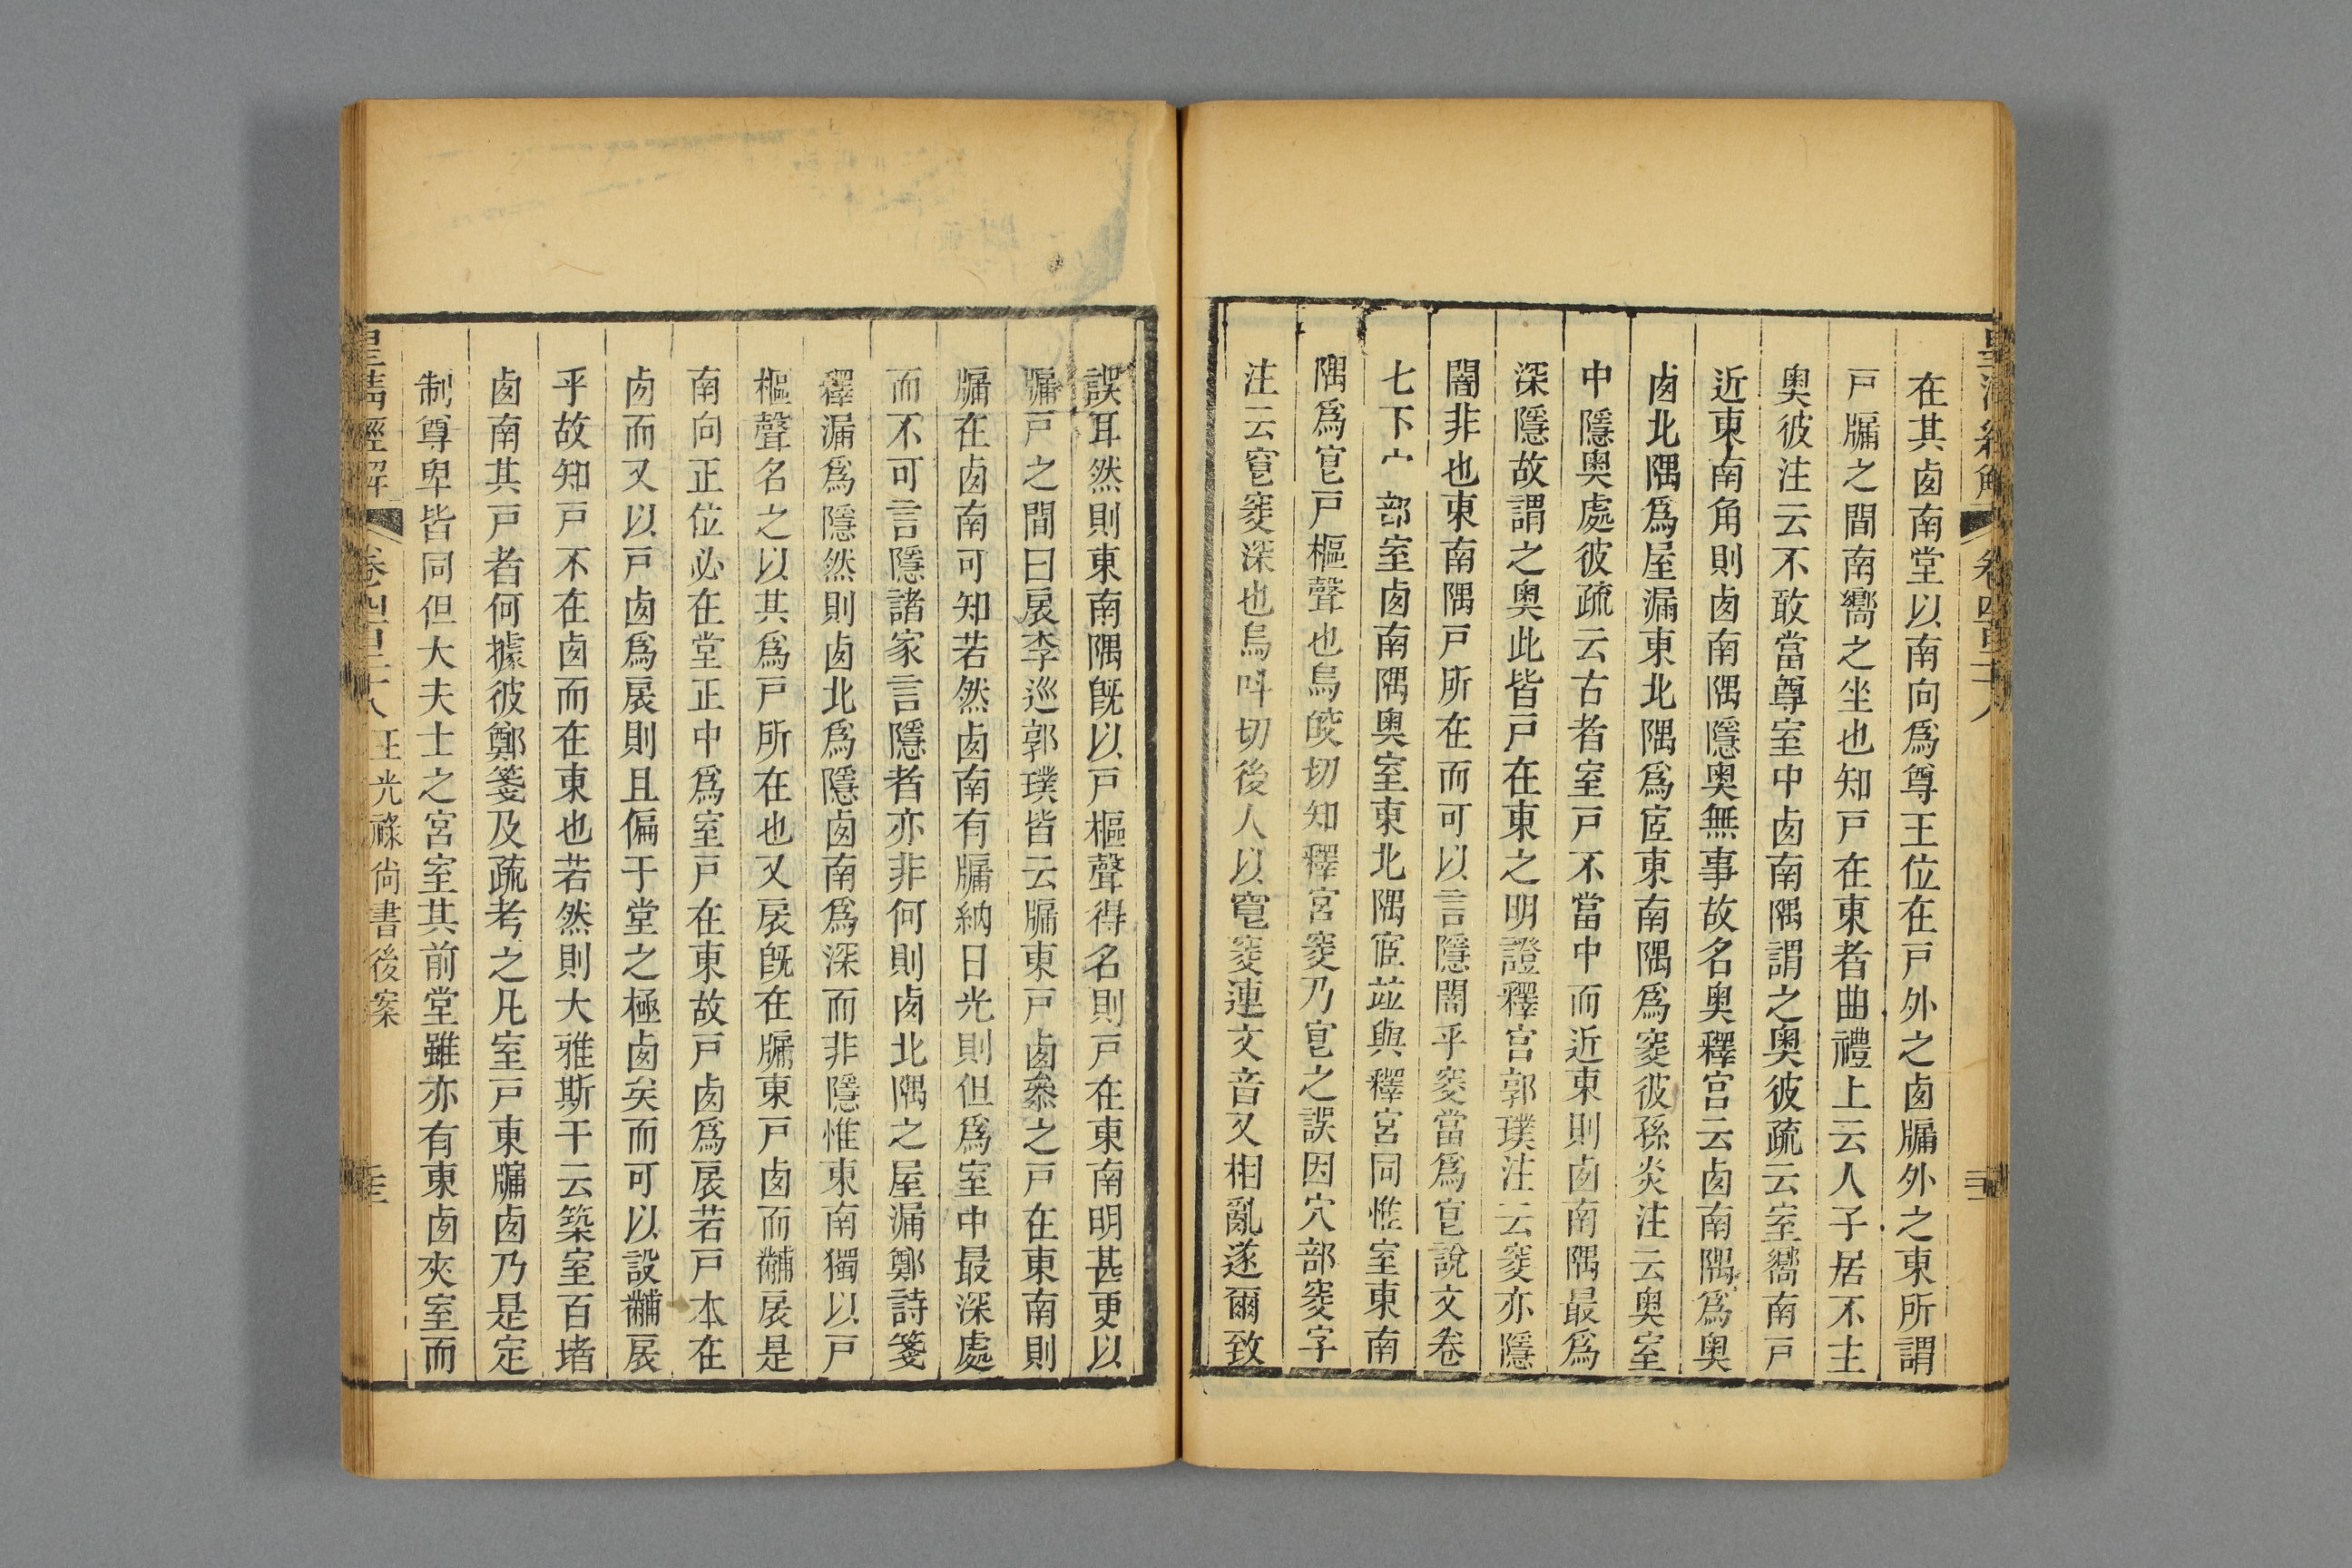 在其卤南堂以南向爲尊王位在戸外之卤牖外之東所謂
戸牖之間南嚮之坐也知戸在東者曲禮上云人子居不主
奥彼注云不敢當尊室中卤南隅謂之奥彼疏云室嚮南戸
近東南角則卤南隅隱奥無事故名奥釋宫云卤南隅爲奥
卤北隅爲屋漏東北隅爲宧東南隅爲窔彼孫炎注云奥室
中隱奥處彼疏云古者室戸不當中而近東則卤南隅最爲
深隱故謂之奥此皆戸在東之明證釋宫郭璞注云窔亦隱
闇非也東南隅戸所在而可以言隱闇乎窔當爲㝔說文卷
七下宀部室卤南隅奥室東北隅宧竝與釋宫同惟室東南
隅爲㝔戸樞聲也烏皎切知釋宫窔乃㝔之誤因穴部窔字
注云窅窔深也烏叫切後人以窅窔連文音又相亂遂爾致
誤耳然則東南隅旣以戸樞聲得名則戸在東南明甚更以
牖戸之間曰扆李巡郭璞皆云牖東戸卤叅之戸在東南則
牖在卤南可知若然卤南有牖納日光則但爲室中最深處
而不可言隱諸家言隱者亦非何則卤北隅之屋漏鄭詩箋
釋漏爲隱然則卤北爲隱卤南爲深而非隱惟東南獨以戸
樞聲名之以其爲戸所在也又扆旣在牖東戸卤而黼扆是
南向正位必在堂正中爲室戸在東故戸卤爲扆若戸本在
卤而又以戸卤爲扆則且偏于堂之極卤矣而可以設黼扆
乎故知戸不在卤而在東也若然則大雅斯干云築室百堵
卤南其戸者何據彼鄭箋及疏考之凡室戸東牖卤乃是定
制尊卑皆同但大夫士之宫室其前堂雖亦有東卤夾室而
皇淸經解 卷四百二十八 王光祿尚書後案